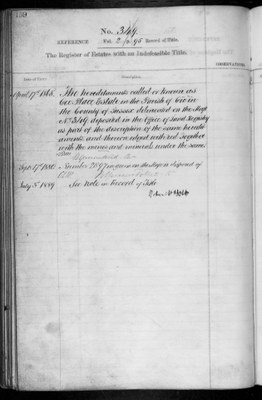 No. 3/49.
REFERENCE
Vol. 2 p. 95 Record of Title.
The Register of Estates with an Indefeasible Title.
Date of Entry.
Description.
OBSERVATIONS
April 17th 1865. The hereditaments called or known as
Place Estate in the Parish of
the County of Sussex delineated on the Map
No. 3/49 deposited in the Office of Land Registry
as part of the description of the same heredit
aments and thereon edged with red together
with the mines and minerals under the same
Sept. 17th 1880 Number 2897 in green on the Map is disposed of
July 5th 1889 See note in Record of Title